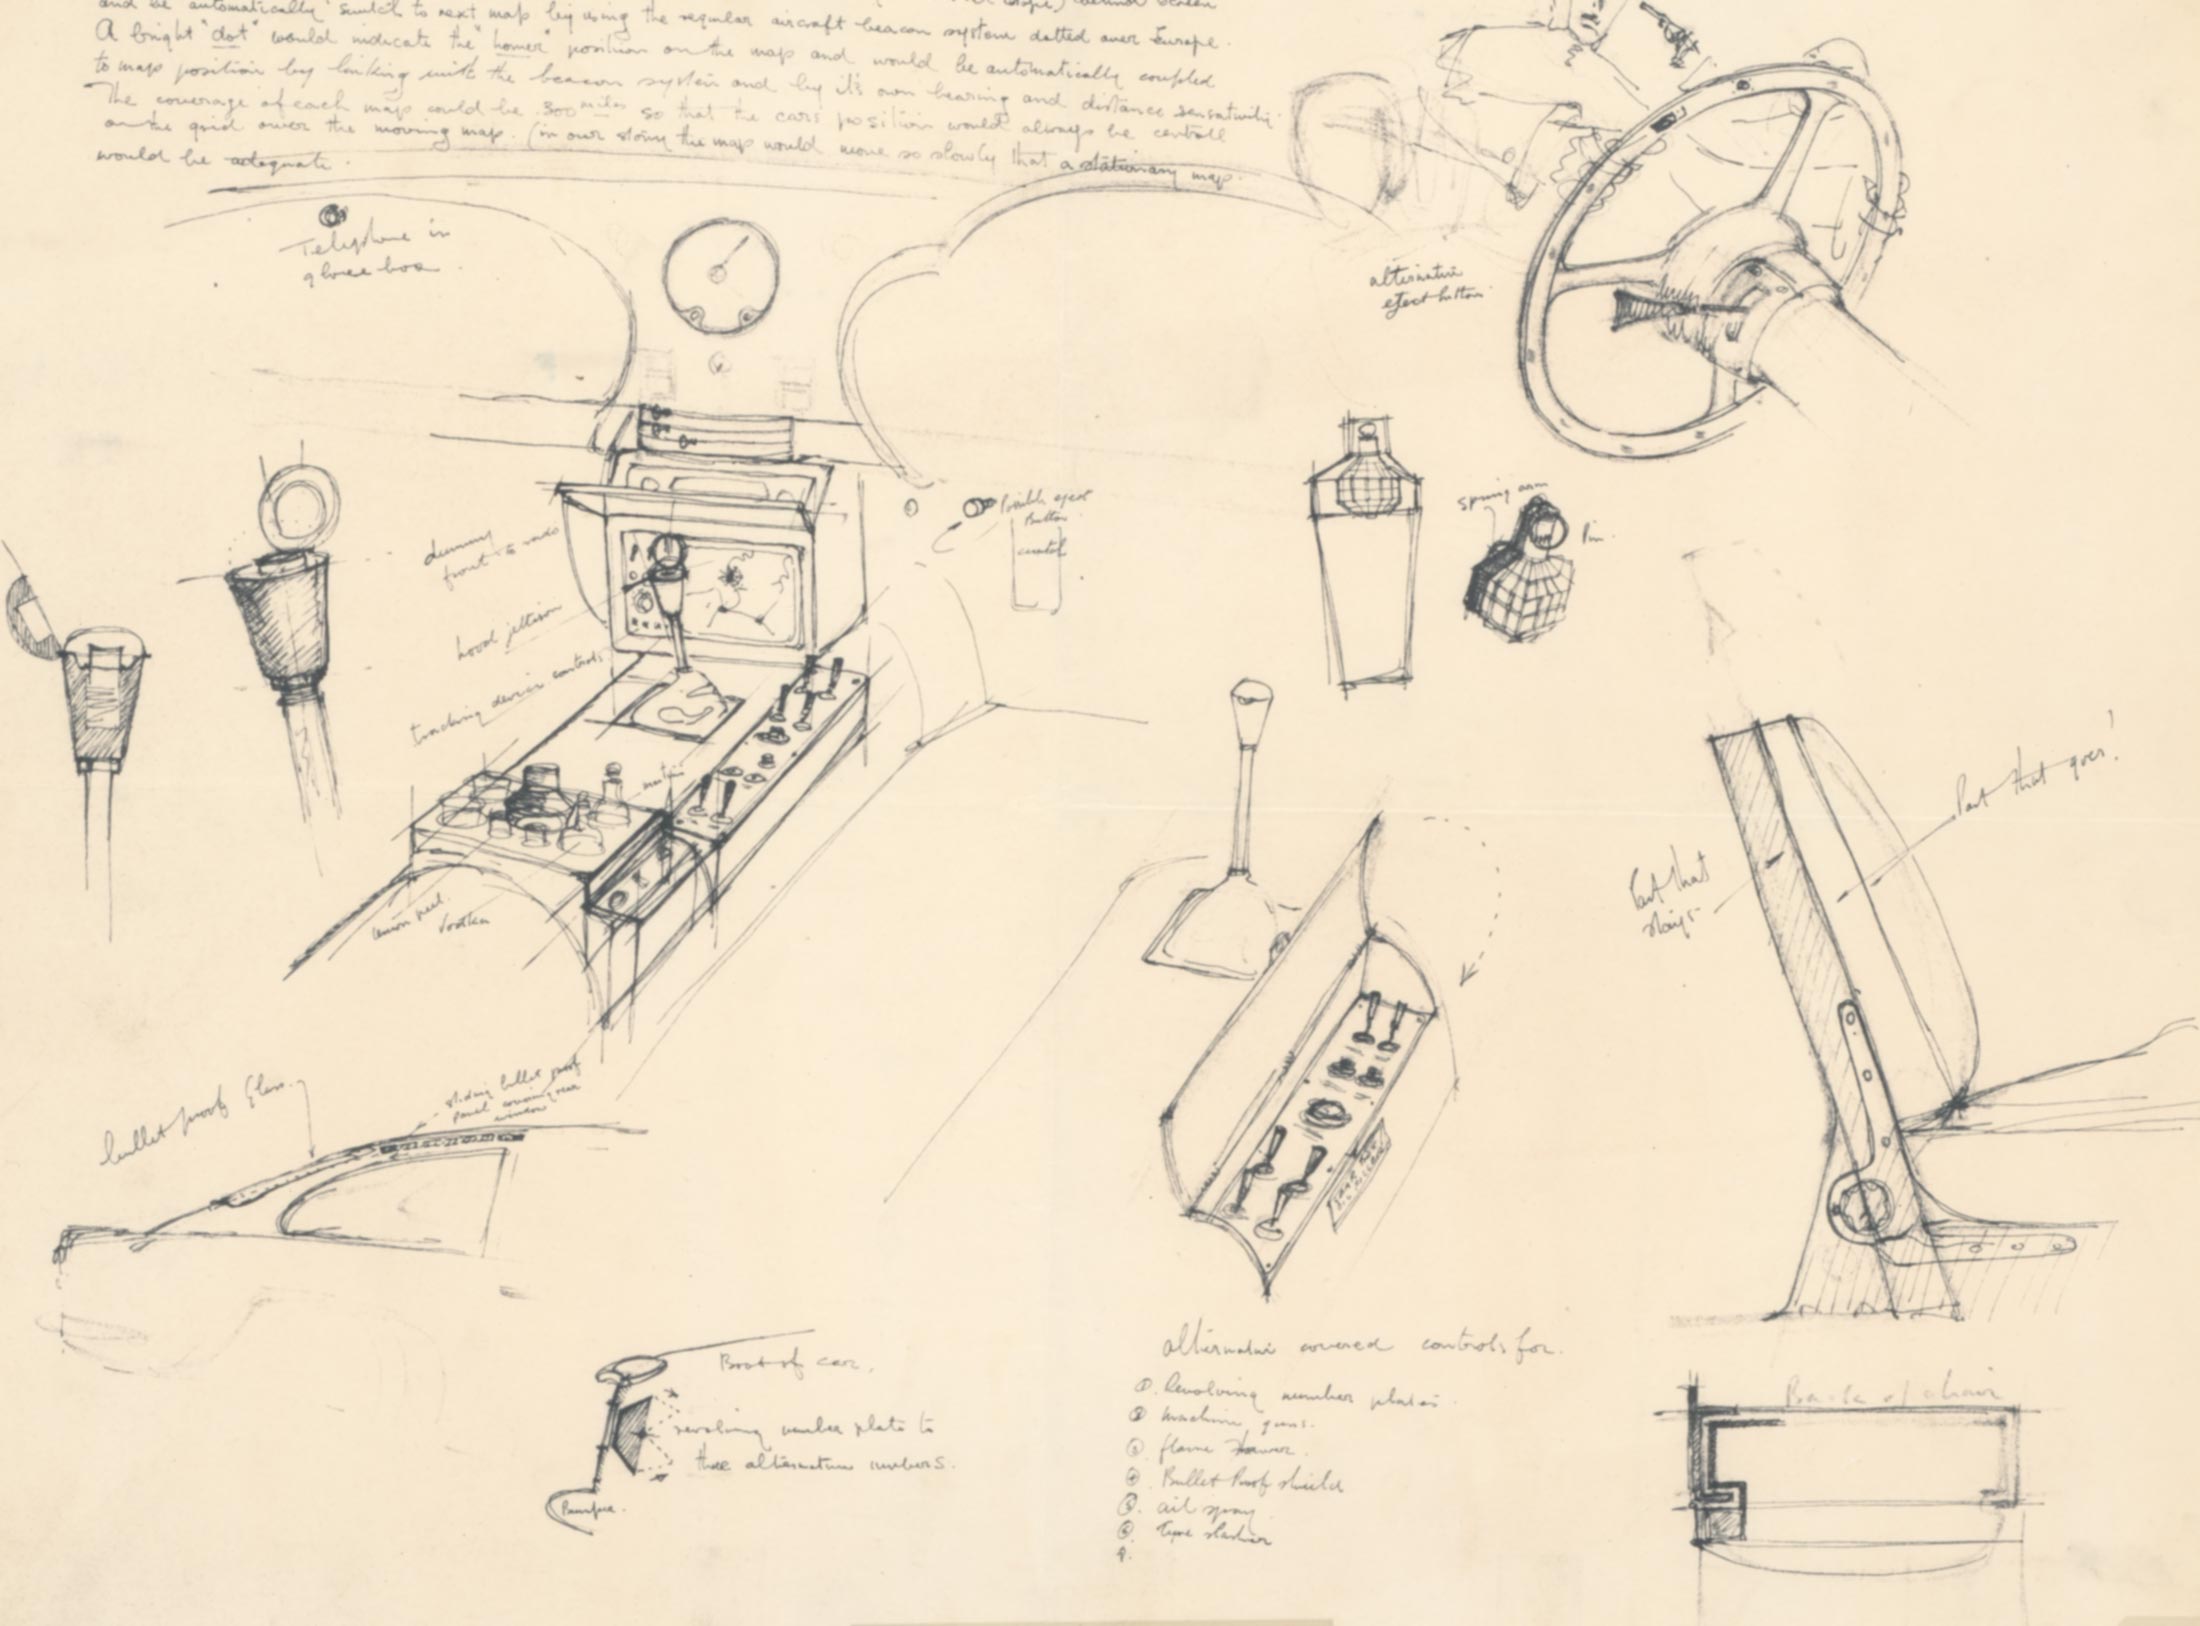 and be automatically switch to next map by using the regular aircraft beacon system dotted over Europe.
A bright "dot" would indicate the "homer" position on the map and would be automatically coupled
to map position by linking with the beacon system and by it's own bearing and distance sensativity.
The coverage of each map could be 300 miles so that the cars position would always be centrall
on the grid over the moving map. (in our story the map would move so slowly that a stationary map
would be adequate.
Telephone in
glove box.
alternative
eject button
Possible eject
Button
spring arm
Pin.
dummy
front to radio
hood jettison
tracking device controls
martini
lemon peel.
Vodka
Part that goes!
Part that
stays
bullet proof glass.
sliding bullet proof
panel covering rear
window
Boot of car.
revolving number plate to
three alternative numbers.
Bumper.
alternative covered controls for.
1. Revolving number plates.
2 machine guns.
3 flame thrower.
4. Bullet Proof shield
5. oil spray.
6. Tyre slasher
7.
Back of chair